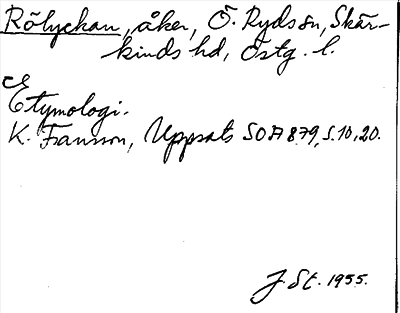 Rölyckan, åker, Ö. Ryds sn, Skär-
kinds hd, Östg. l.
Etymologi.
K. Fransson, Uppsats SOA 879, s. 10, 20.
J St. 1955.